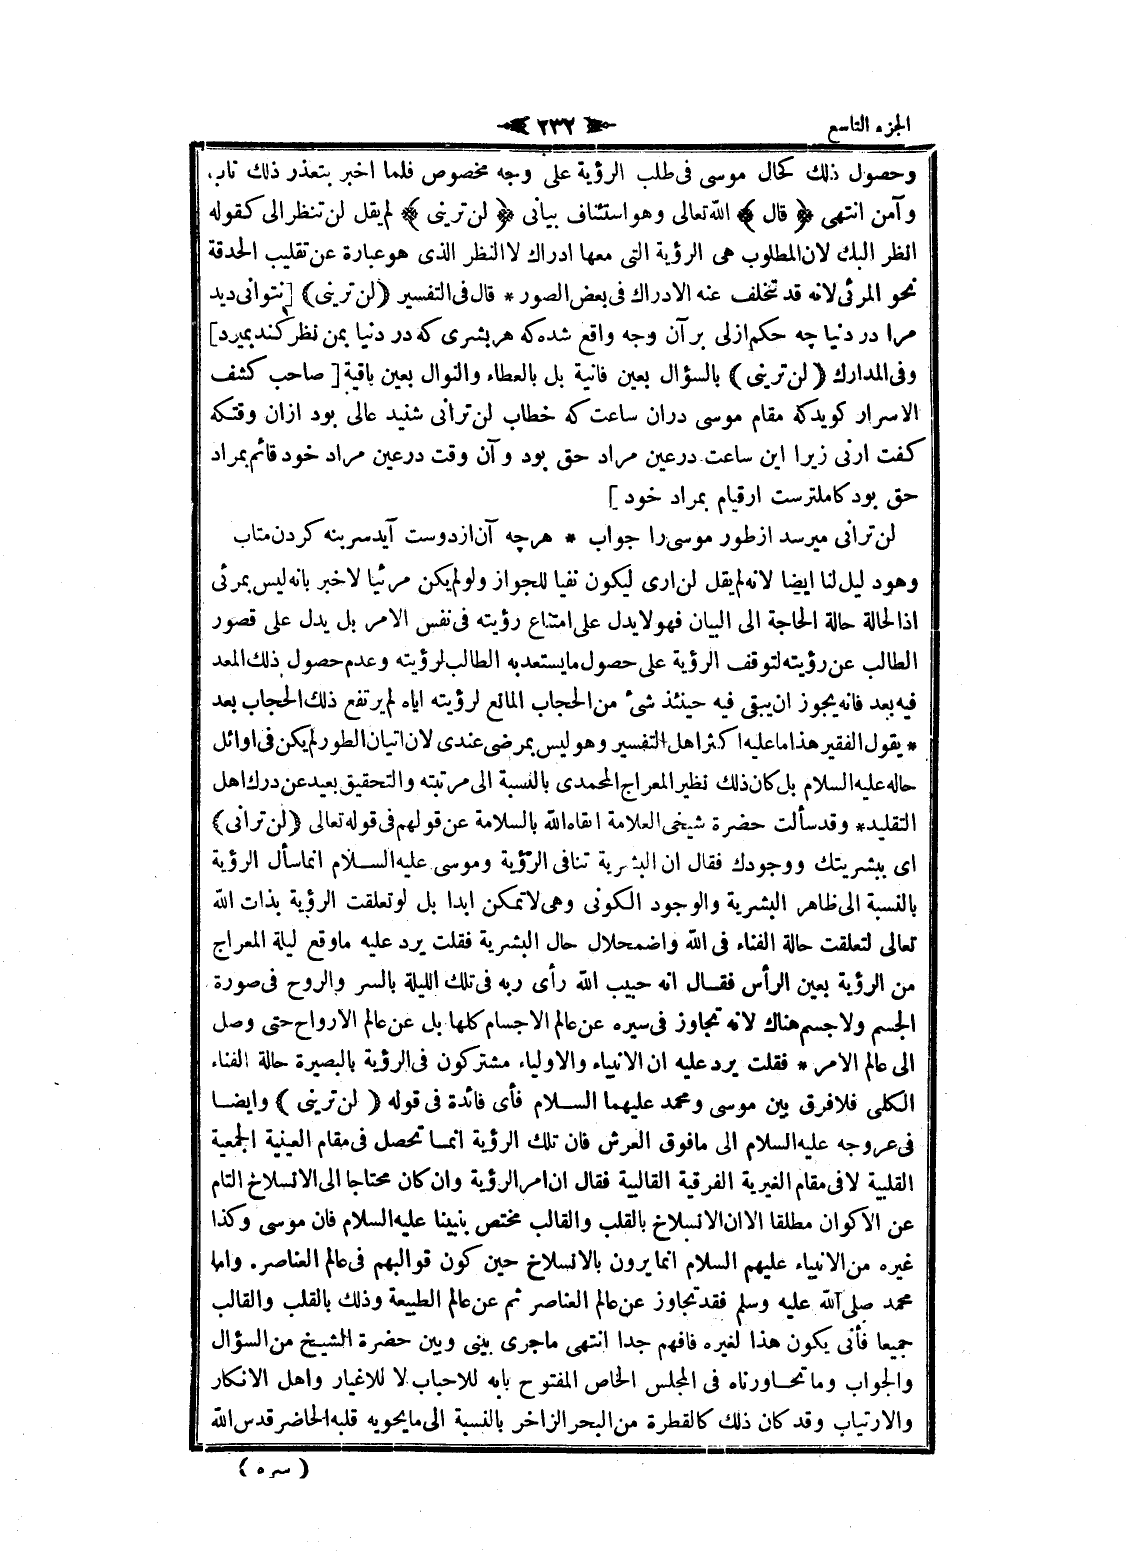 الجزء التاسع
٢٣٢
وحصول ذلك كحال موسى فى طلب الرؤية على وجه مخصوص فلما اخبر بتعذر ذلك تاب
وآمن انتهى ﴿ قال ﴾ الله تعالى وهو استئناف بيانى ﴿ لن ترينى ﴾ لم يقل لن تنظر الى كقوله
انظر اليك لان المطلوب هى الرؤية التى معها ادراك لا النظر الذى هو عبارة عن تقليب الحدقة
نحو المرئى لانه قد تخلف عنه الادراك فى بعض الصور * قال فى التفسير (لن ترينى) [نتوانى ديد
مرا در دنيا چه حكم ازلى بر آن وجه واقع شده كه هر بشرى كه در دنيا بمن نظر كند بميرد]
وفى المدارك (لن ترينى) بالسؤال بعين فانية بل بالعطاء والنوال بعين باقية [صاحب كشف
الاسرار كويد كه مقام موسى دران ساعت كه خطاب لن ترانى شنيد عالى بود ازان وقتكه
كفت ارنى زيرا اين ساعت در عين مراد حق بود و آن وقت در عين مراد خود قائم بمراد
حق بود كاملترست ارقيام بمراد خود ]
لن ترانى ميرسد از طور موسى را جواب * هرچه آن از دوست آيد سربنه كردن متاب
وهو دليل لنا ايضا لانه لم يقل لن ارى ليكون نفيا للجواز ولو لم يكن مرئيا لاخبر بانه ليس بمرئى
اذ الحالة حالة الحاجة الى البيان فهو لا يدل على امتناع رؤيته فى نفس الامر بل يدل على قصور
الطالب عن رؤيته لتوقف الرؤية على حصول ما يستعد به الطالب لرؤيته وعدم حصول ذلك المعد
فيه بعد فانه يجوز ان يبقى فيه حينئذ شئ من الحجاب المانع لرؤيته اياه لم يرتفع ذلك الحجاب بعد
* يقول الفقير هذا ما عليه اكثر اهل التفسير وهو ليس بمرضى عندى لان اتيان الطور لم يكن فى اوائل
حاله عليه السلام بل كان ذلك نظير المعراج المحمدى بالنسبة الى مرتبته والتحقيق بعيد عن درك اهل
التقليد * وقد سألت حضرة شيخى العلامة ابقاه الله بالسلامة عن قولهم فى قوله تعالى (لن ترانى)
اى ببشريتك ووجودك فقال ان البشرية تنافى الرؤية وموسى عليه السلام انما سأل الرؤية
بالنسبة الى ظاهر البشرية والوجود الكونى وهى لا تمكن ابدا بل لو تعلقت الرؤية بذات الله
تعالى لتعلقت حالة الفناء فى الله واضمحلال حال البشرية فقلت يرد عليه ما وقع ليلة المعراج
من الرؤية بعين الرأس فقال انه حبيب الله رأى ربه فى تلك الليلة بالسر والروح فى صورة
الجسم ولا جسم هناك لانه تجاوز فى سيره عن عالم الاجسام كلها بل عن عالم الارواح حتى وصل
الى عالم الامر * فقلت يرد عليه ان الانبياء والاولياء مشتركون فى الرؤية بالبصيرة حالة الفناء
الكلى فلا فرق بين موسى ومحمد عليهما السلام فأى فائدة فى قوله ( لن ترينى ) وايضا
فى عروجه عليه السلام الى ما فوق العرش فان تلك الرؤية انما تحصل فى مقام العينية الجمعية
القلبية لا فى مقام الغيرية الفرقية القالبية فقال ان امر الرؤية وان كان محتاجا الى الانسلاخ التام
عن الاكوان مطلقا الا ان الانسلاخ بالقلب والقالب مختص بنبينا عليه السلام فان موسى وكذا
غيره من الانبياء عليهم السلام انما يرون بالانسلاخ حين كون قوالبهم فى عالم العناصر . واما
محمد صلى الله عليه وسلم فقد تجاوز عن عالم العناصر ثم عن عالم الطبيعة وذلك بالقلب والقالب
جميعا فأنى يكون هذا لغيره فافهم جدا انتهى ماجرى بينى وبين حضرة الشيخ من السؤال
والجواب وما تحاورناه فى المجلس الخاص المفتوح بابه للاحباب لا للاغيار واهل الانكار
والارتياب وقد كان ذلك كالقطرة من البحر الزاخر بالنسبة الى ما يحويه قلبه الحاضر قدس الله
( سره )